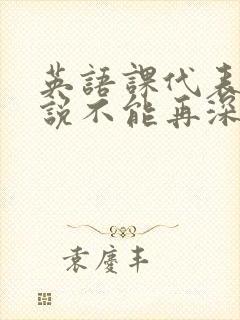 英語課代表
說不能再深
袁慶丰